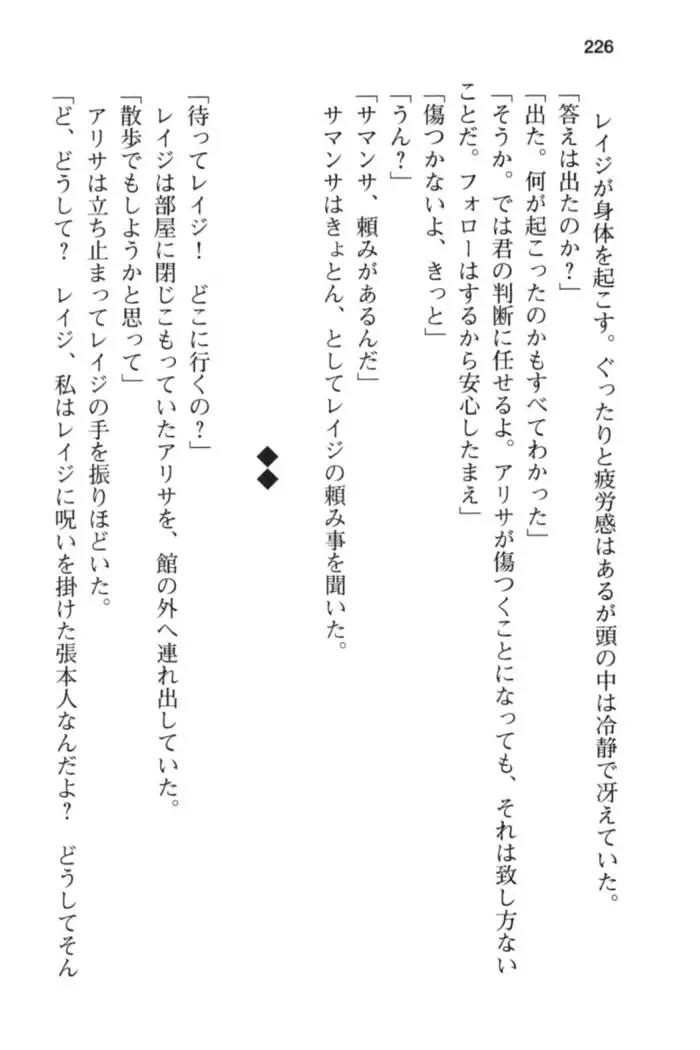 226
レイジが身体を起こす。ぐったりと疲労感はあるが頭の中は冷静で冴えていた。
「答えは出たのか？」
「出た。何が起こったのかもすべてわかった」
「そうか。では君の判断に任せるよ。アリサが傷つくことになっても、それは致し方ない
ことだ。フォローはするから安心したまえ」
「傷つかないよ、きっと」
「うん？」
「サマンサ、頼みがあるんだ」
サマンサはきょとん、としてレイジの頼み事を聞いた。
◆◆
「待ってレイジ！　どこに行くの？」
レイジは部屋に閉じこもっていたアリサを、館の外へ連れ出していた。
「散歩でもしようかと思って」
アリサは立ち止まってレイジの手を振りほどいた。
「ど、どうして？　レイジ、私はレイジに呪いを掛けた張本人なんだよ？　どうしてそん